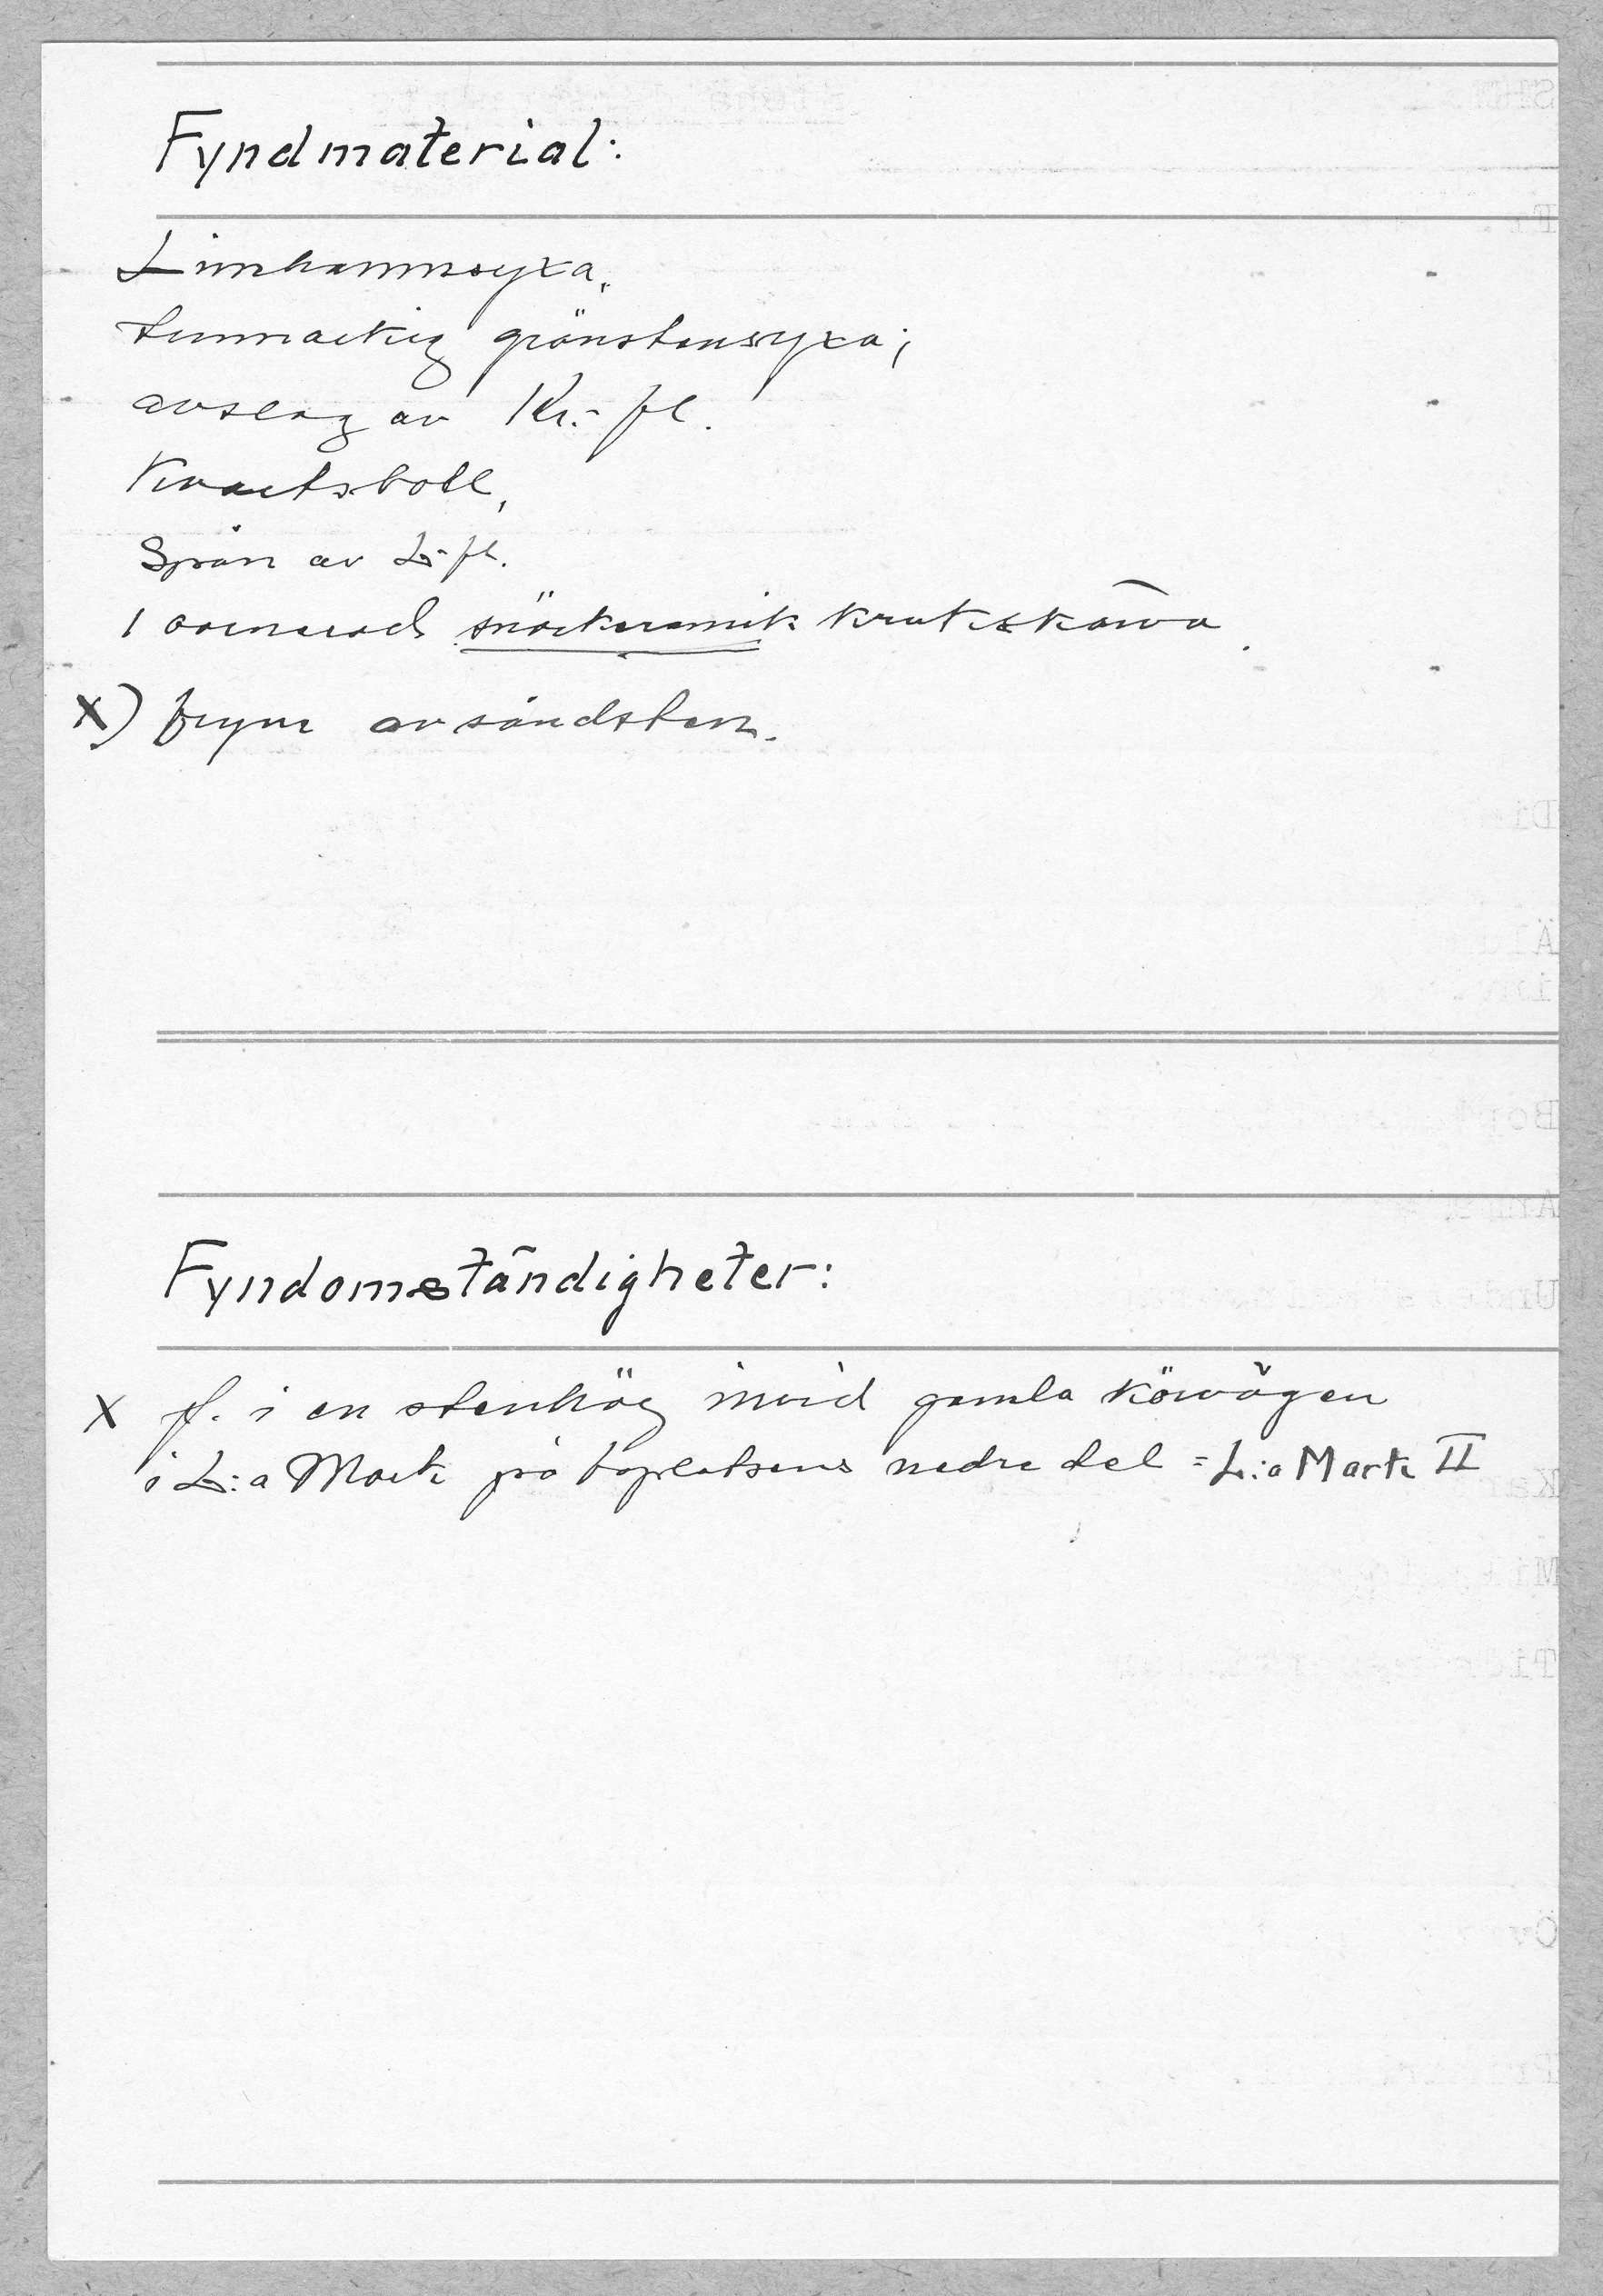 Fyndmaterial:
Limhamnsyxa,
tunnackig grönstensyxa;
avslag av Kr.-fl.
Kvartsboll,
Spån av L-fl.
1 ornerad snörkeramik krukskärva.
X) bryne av sandsten.
Fyndomständigheter:
X f. i en stenhög invid gamla körvägen
i L:a Mark på boplatsens nedre del = L:a Mark II